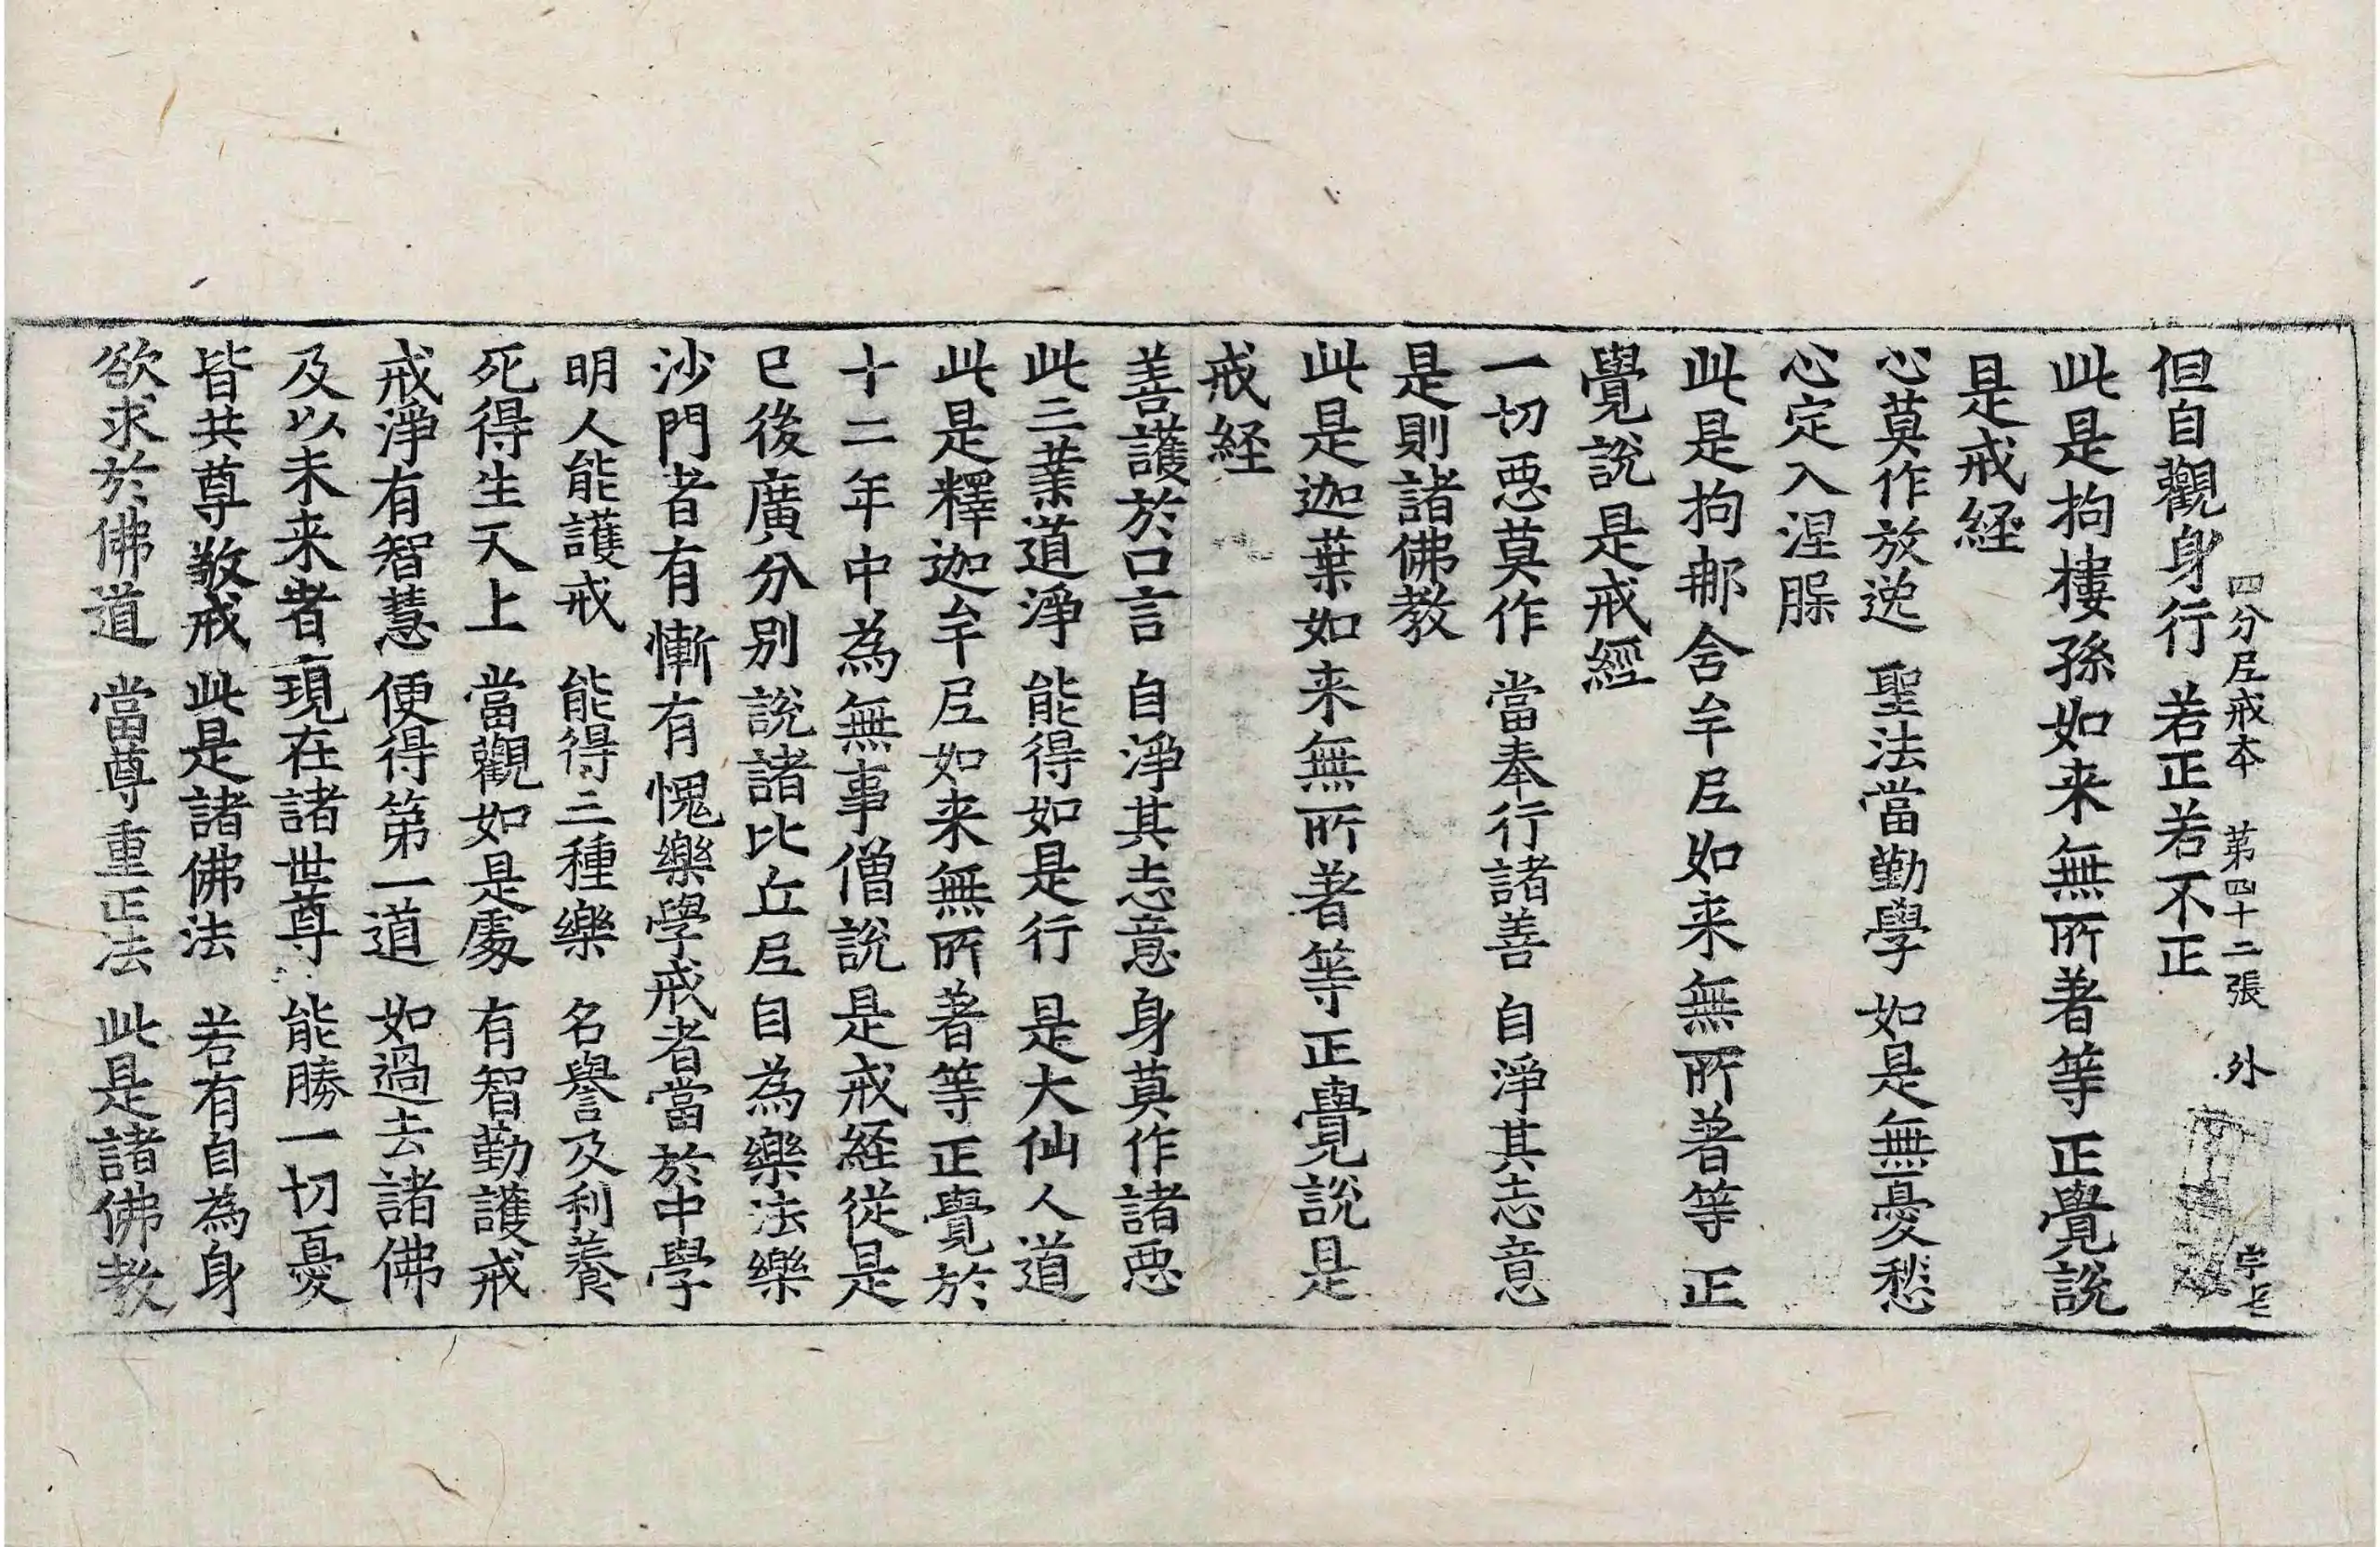 四分尼戒本 第四十二張 外
但自觀身行 若正若不正
此是拘樓孫如来無所著等正覺說
是戒経
心莫作放逸 聖法當勤學 如是無憂愁
心定入涅脲
此是拘那舍牟尼如来無所著等正
覺說是戒經
一切惡莫作 當奉行諸善 自淨其志意
是則諸佛教
此是迦葉如来無所著等正覺說是
戒経
善護於口言 自淨其志意 身莫作諸惡
此三業道淨 能得如是行 是大仙人道
此是釋迦牟尼如来無所著等正覺於
十二年中為無事僧說是戒経從是
已後廣分别說諸比丘尼自為樂法樂
沙門者有慚有愧樂學戒者當於中學
明人能護戒 能得三種樂 名譽及利養
死得生天上 當觀如是處 有智勤護戒
戒淨有智慧 便得第一道 如過去諸佛
及以未来者 現在諸世尊 能勝一切憂
皆共尊敬戒 此是諸佛法 若有自為身
欲求於佛道 當尊重正法 此是諸佛教